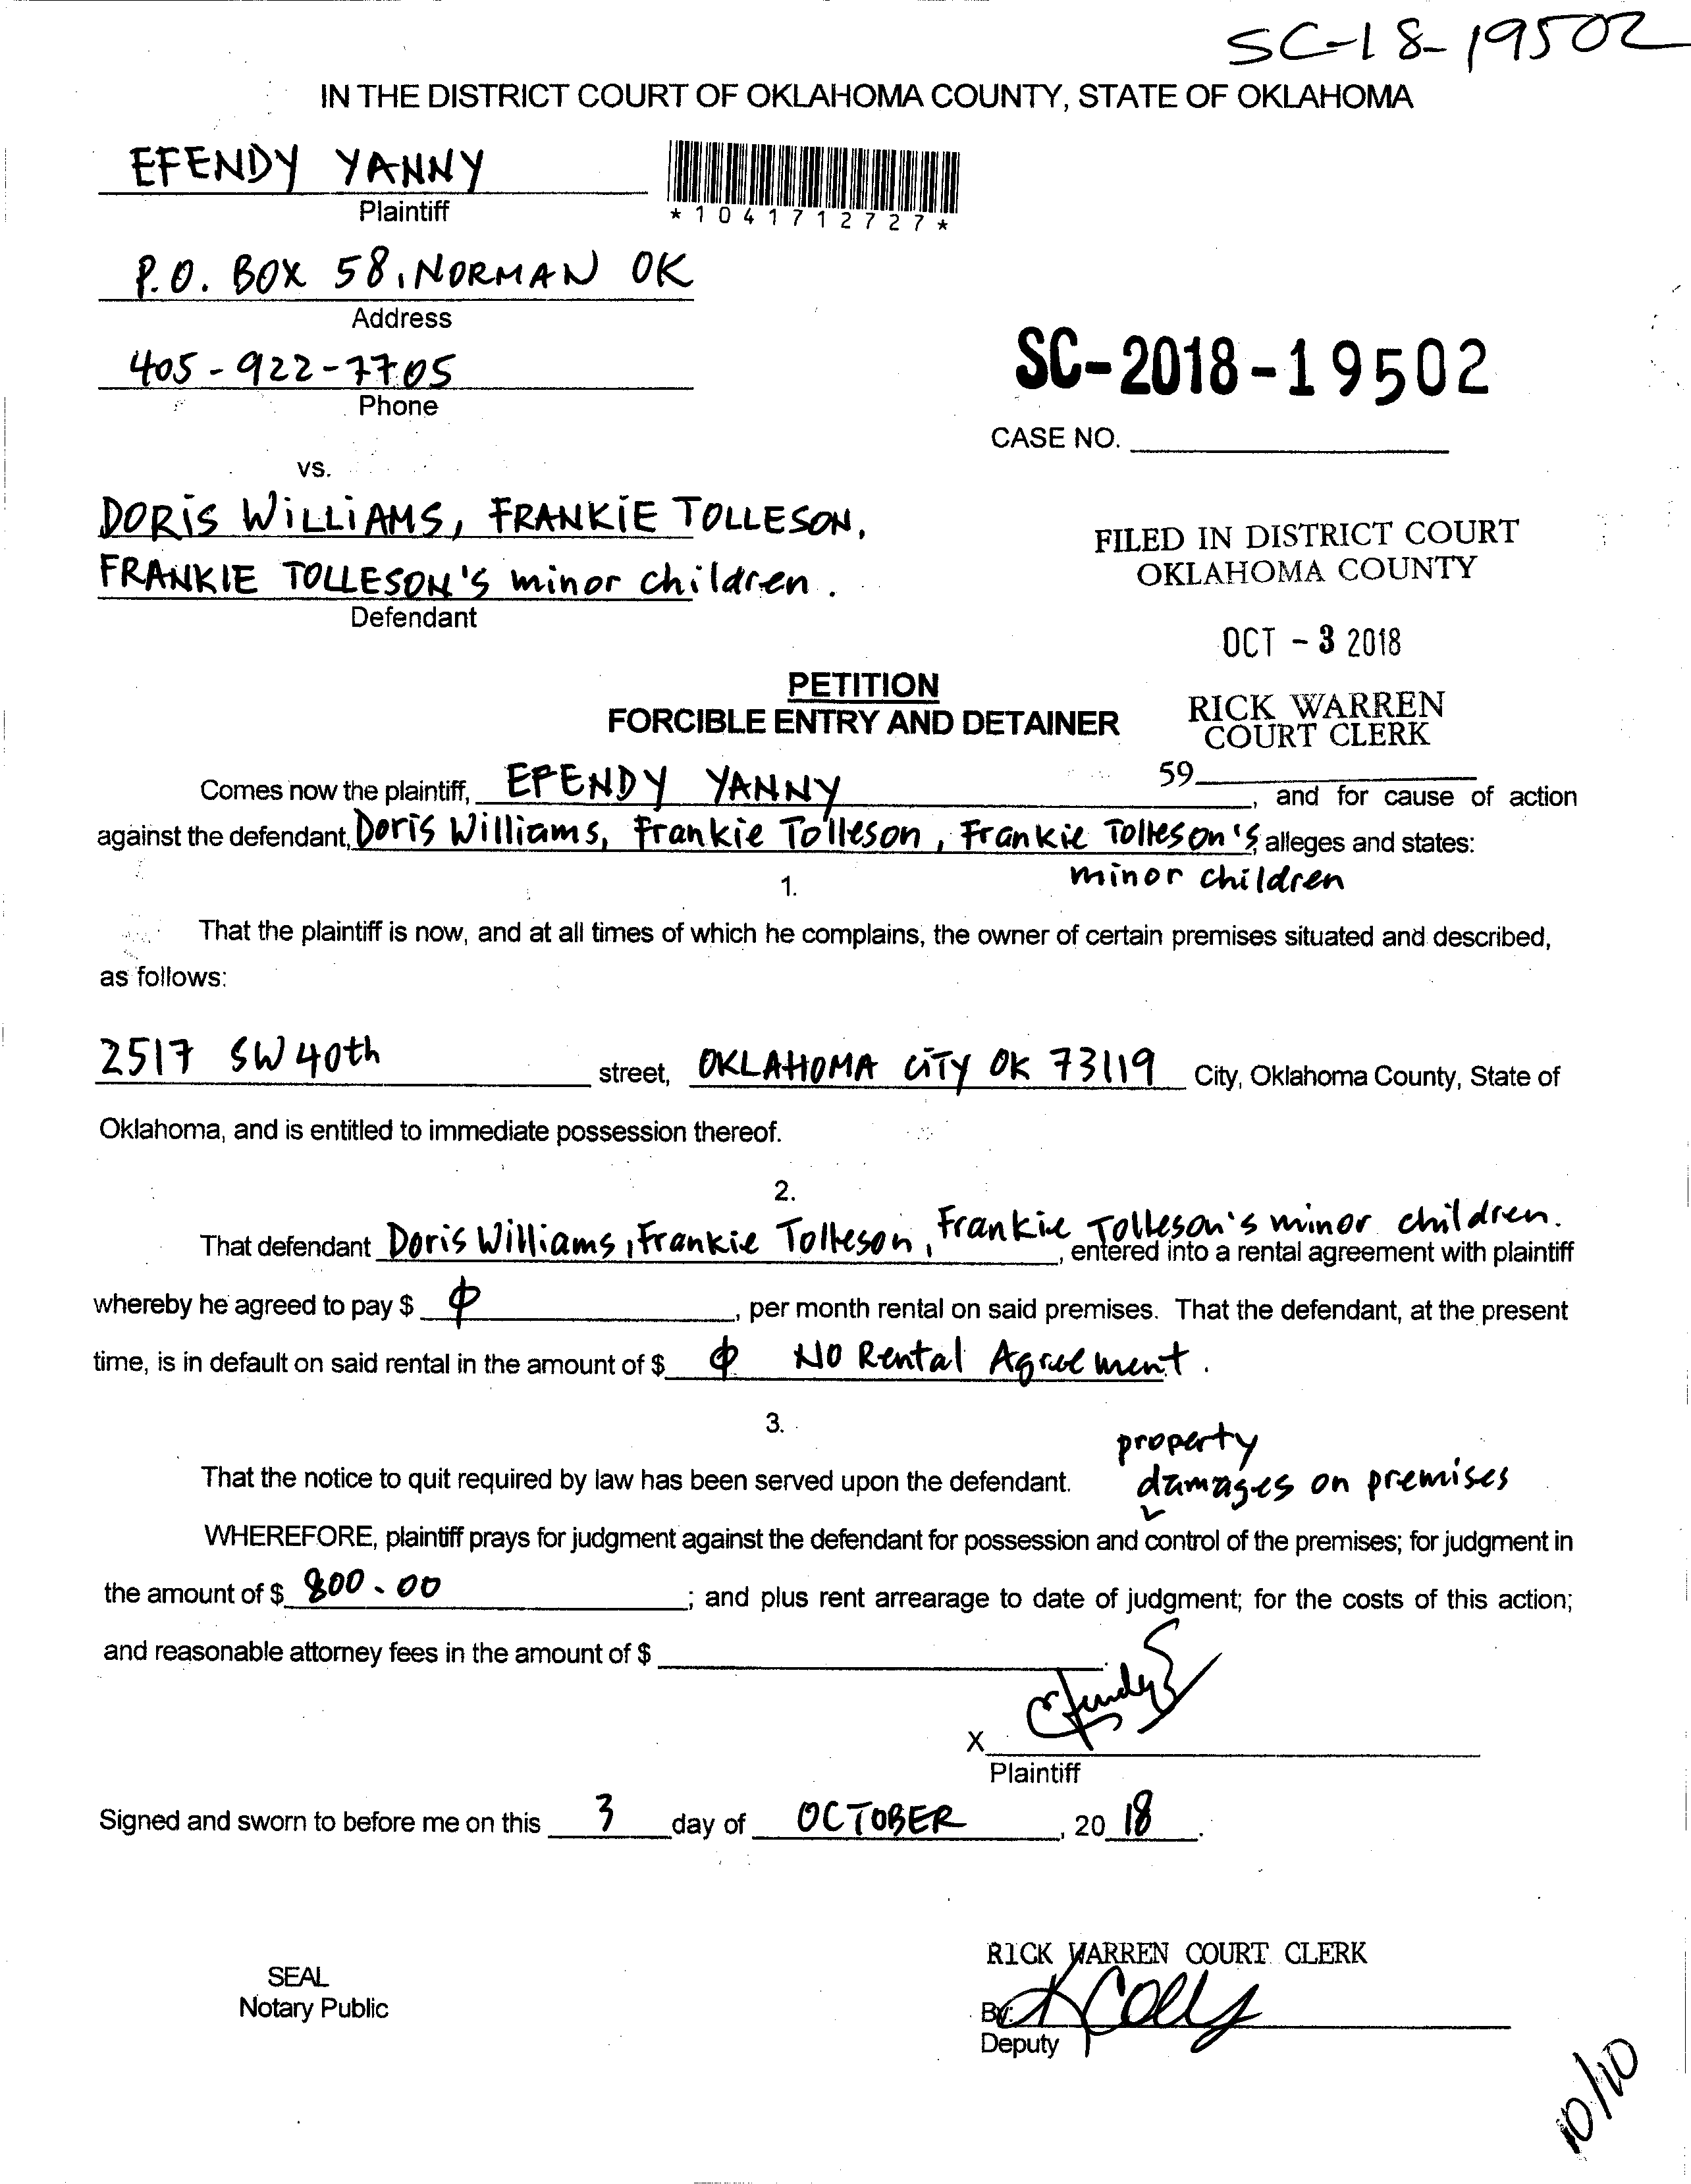 SC-18-19502
IN THE DISTRICT COURT OF OKLAHOMA COUNTY, STATE OF OKLAHOMA
EFENDY YANNY
Plaintiff
*1041712727*
P.O. BOX 58, NORMAN OK
Address
405-922-7705
Phone
SC-2018-19502
CASE NO.
vs.
DORIS WILLIAMS, FRANKIE TOLLESON,
FRANKIE TOLLESON'S minor children.
Defendant
FILED IN DISTRICT COURT
OKLAHOMA COUNTY
OCT - 3 2018
RICK WARREN
COURT CLERK
59
PETITION
FORCIBLE ENTRY AND DETAINER
Comes now the plaintiff, EFENDY YANNY, and for cause of action
against the defendant, Doris Williams, Frankie Tolleson, Frankie Tolleson's alleges and states:
minor children
1.
That the plaintiff is now, and at all times of which he complains, the owner of certain premises situated and described,
as follows:
2517 SW 40th street, OKLAHOMA CITY OK 73119 City, Oklahoma County, State of
Oklahoma, and is entitled to immediate possession thereof.
2.
That defendant Doris Williams, Frankie Tolleson, Frankie Tolleson's minor children., entered into a rental agreement with plaintiff
whereby he agreed to pay $ φ, per month rental on said premises. That the defendant, at the present
time, is in default on said rental in the amount of $ φ NO Rental Agreement.
3.
property
That the notice to quit required by law has been served upon the defendant. damages on premises
WHEREFORE, plaintiff prays for judgment against the defendant for possession and control of the premises; for judgment in
the amount of $ 800.00; and plus rent arrearage to date of judgment; for the costs of this action;
and reasonable attorney fees in the amount of $
X
Plaintiff
Signed and sworn to before me on this 3 day of OCTOBER, 20 18.
RICK WARREN COURT CLERK
SEAL
Notary Public
By:
Deputy
10/10